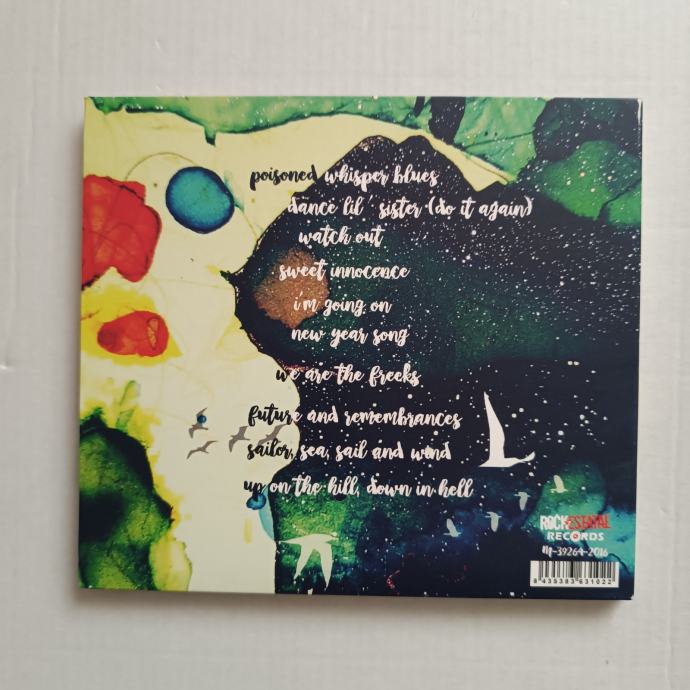 poisoned whisper blues
dance lil' sister (do it again)
watch out
sweet innocence
i'm going on
new year song
we are the freeks
future and remembrances
sailor, sea, sail and wind
up on the hill, down in hell
ROCKESTATAL
RECORDS
M-39264-2016
8 435383 631022